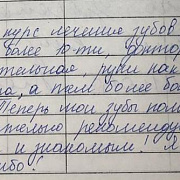 курс лечения зубов
более 10-ти, доктор
тельная, руки как
а, а тем более бо
Теперь мои зубы пол
тельно рекоменду
и знакомым! Я
ибо!